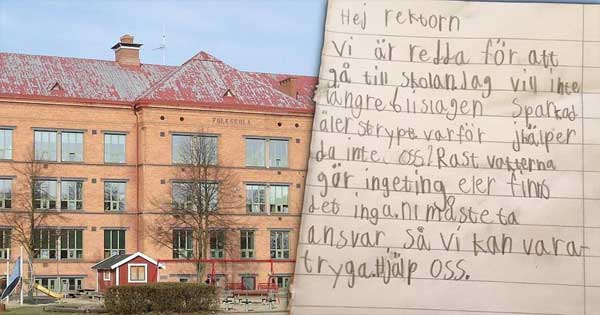 FOLKSKOLA
Hej rektorn
vi är redda för att
gå till skolan. Jag vill inte
längre bli slagen sparkad
äler strypt. varför jhälper
da inte oss? Rast vakterna
gör ingeting eler finns
det inga. ni måste ta
ansvar så vi kan vara
tryga. Hjälp oss.